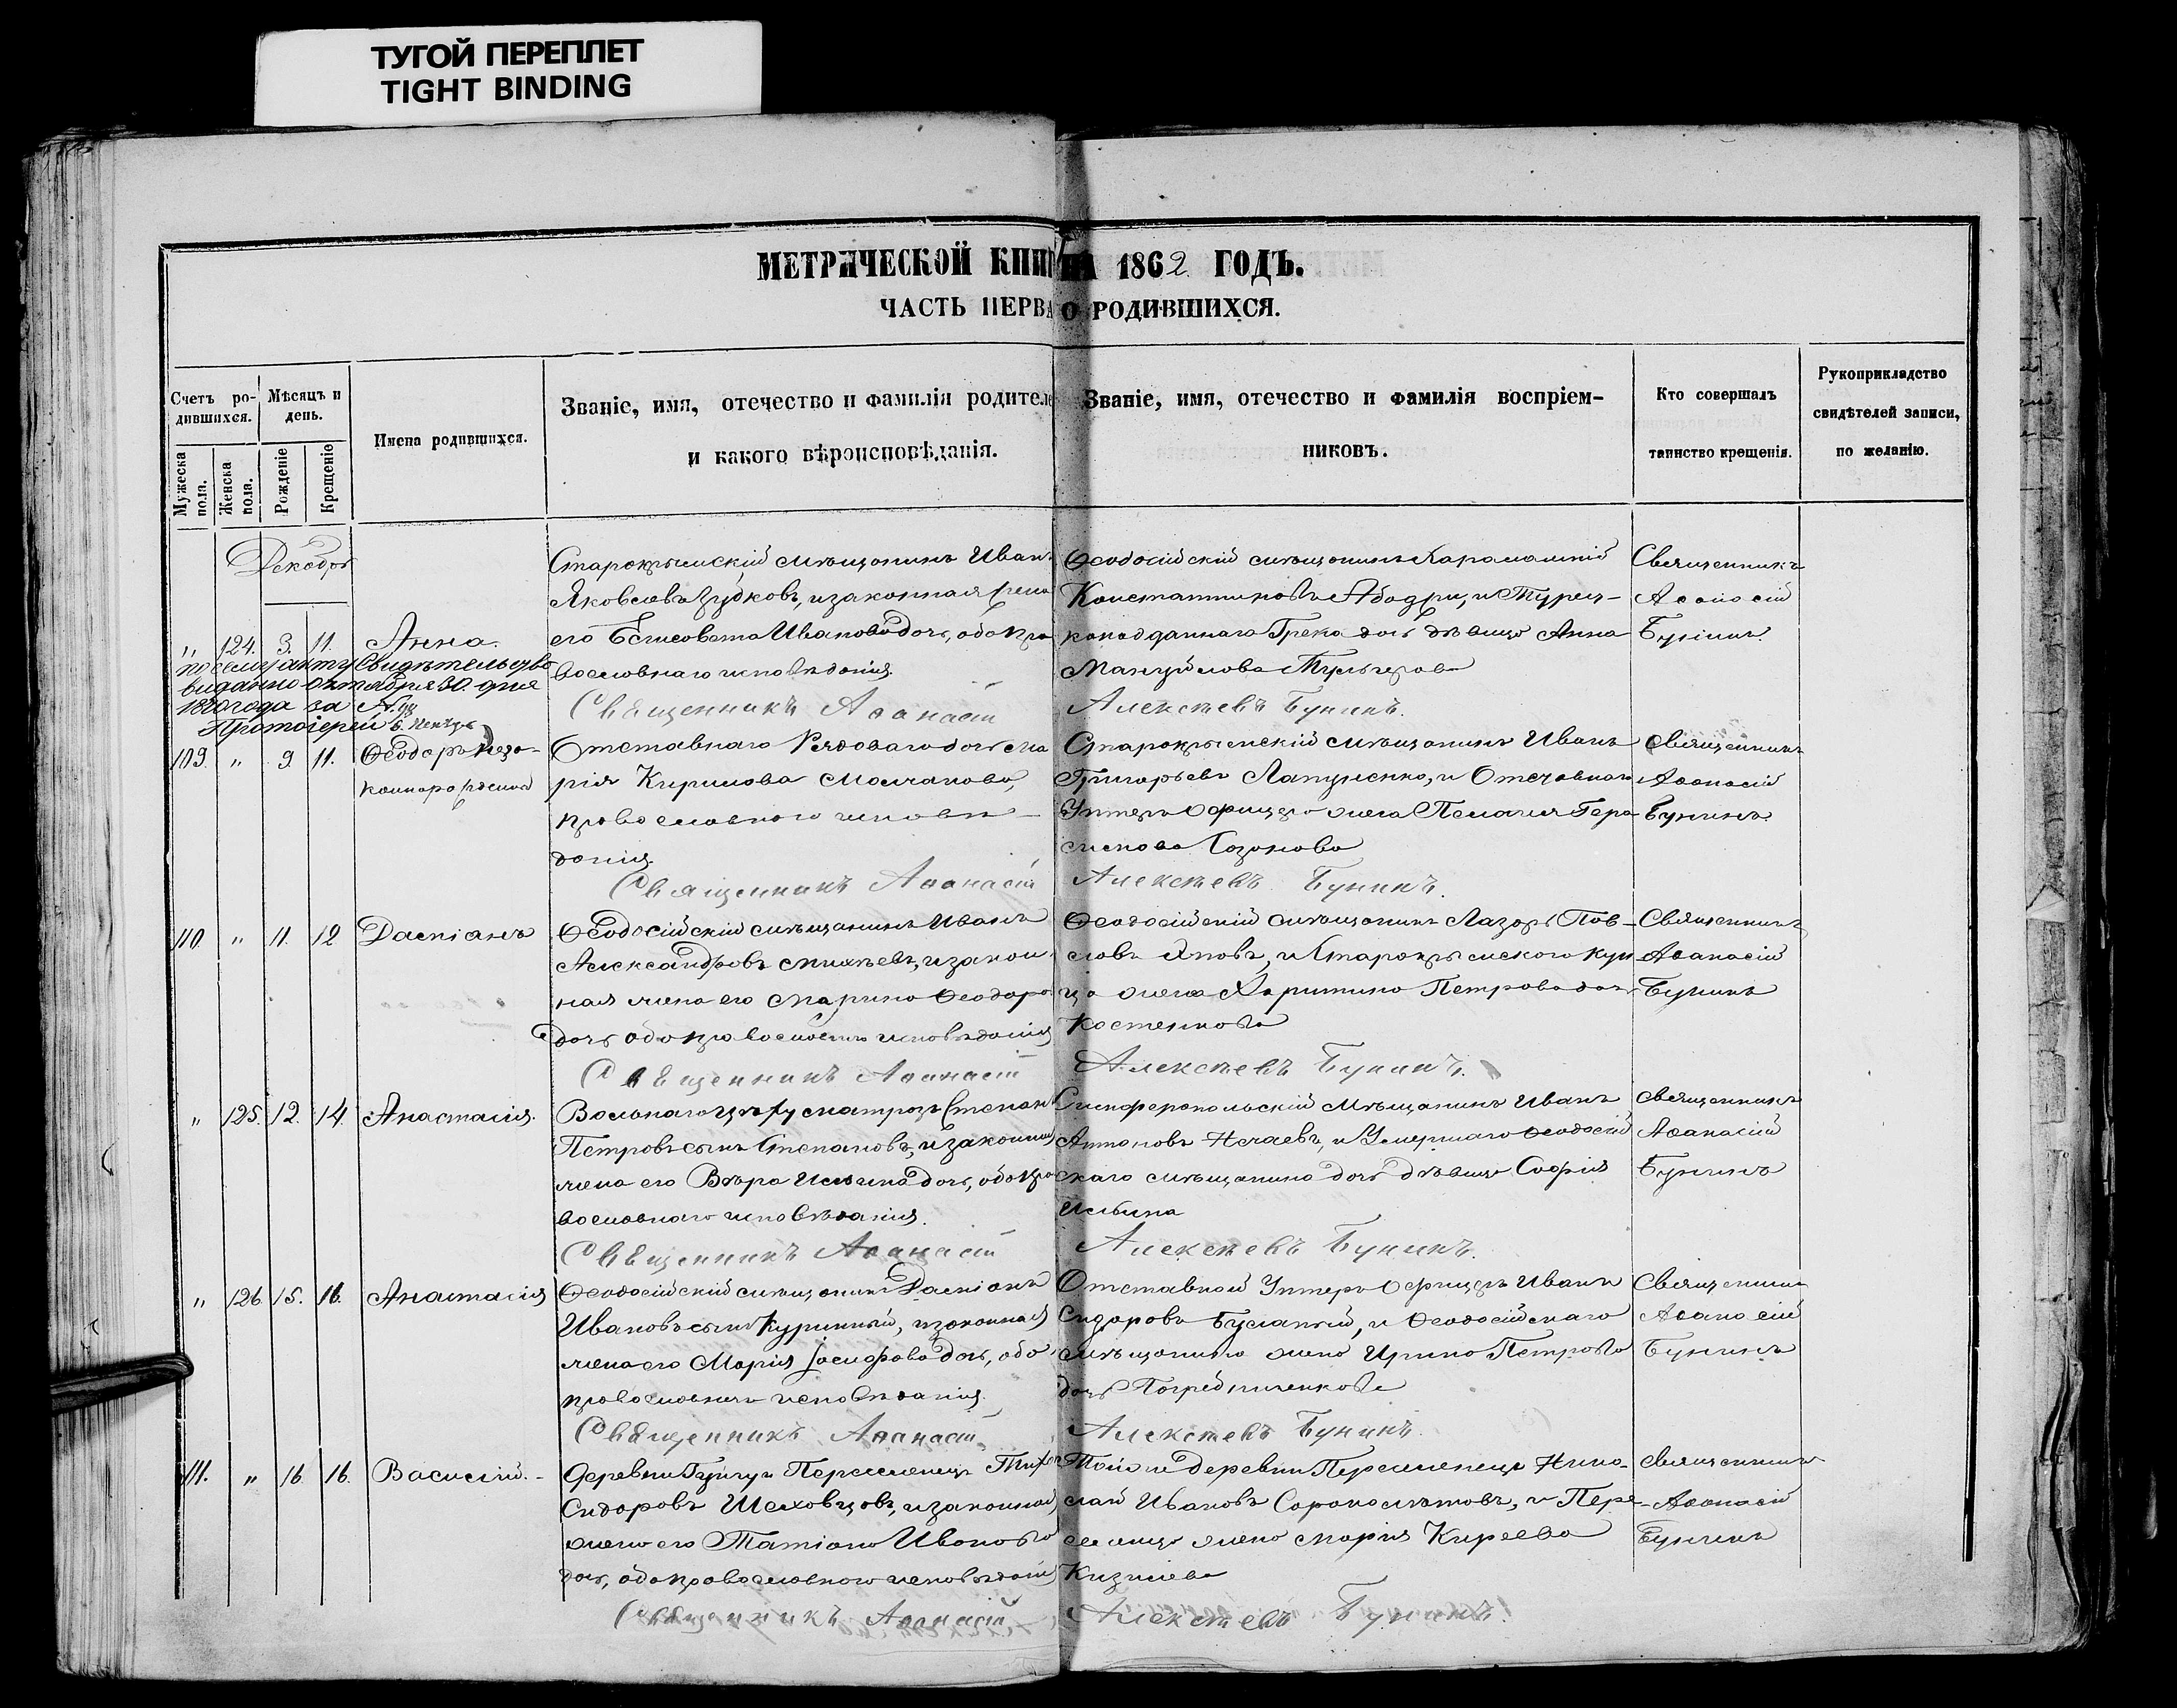 ТУГОЙ ПЕРЕПЛЕТ
TIGHT BINDING
МЕТРИЧЕСКОЙ КНИГ НА 1862 ГОДЪ.
ЧАСТЬ ПЕРВА О РОДИВШИХСЯ.
Счетъ ро-
дившихся.
Мужеска
пола.
Женска
пола.
Мѣсяцъ и
день.
Рожденіе
Крещеніе
Имена родившихся.
Званіе, имя, отечество и фамилія родителе
и какого вѣроисповѣданія.
Званіе, имя, отечество и фамилія воспріем-
никовъ.
Кто совершалъ
таинство крещенія.
Рукоприкладство
свидѣтелей записи,
по желанію.
Декабрь
„ 124. 3. 11. Анна.
Старокрымскій мѣщанинъ Иванъ
Яковлевъ Зубковъ, и законная жена
его Елисовета Иванова дочь, оба пра
вославнаго исповѣданія.
Ѳеодосійскій мѣщанинъ
Константиновъ и Турец-
коподданнаго Грека дочь дѣвица Анна
Мануйлова
Священникъ
Аѳанасій
Бунинъ.
По сему акту Свидѣтельство
выдано октября 30. дня
года за №
Протоіерей
Священникъ Аѳанасій Алексѣевъ Бунинъ.
109. „ 9. 11. Ѳеодоръ незо-
конорожденный
Отставнаго Рядоваго дочь Ма
рія Кирилова Молчанова,
православнаго исповѣ-
данія.
Старокрымскій мѣщанинъ Иванъ
Григорьевъ Лапуненко, и Отставнаго
Унтеръ Офицера жена Пелагия Гера
симова
Священникъ
Аѳанасій
Бунинъ.
Священникъ Аѳанасій Алексѣевъ Бунинъ.
110. „ 11. 12 Даміанъ
Ѳеодосійскій мѣщанинъ Иванъ
Александровъ Михѣевъ, и закон
ная жена его Марина Ѳеодоро
дочь оба православнаго исповѣданія
Ѳеодосійскій мѣщанинъ Лазарь Пав-
ловъ и Старокрымскаго куп
ца жена Харитина Петрова дочь
Костенкова
Священникъ
Аѳанасій
Бунинъ
Священникъ Аѳанасій Алексѣевъ Бунинъ.
„ 125. 12. 14. Анастасія.
Вольнаго матрозъ Степанъ
Петровъ сынъ Степановъ, и законная
жена его Вѣра Ильина дочь, оба пра
вославнаго исповѣданія.
Симферопольскій Мѣщанинъ Иванъ
Антоновъ Нечаевъ, и Умершаго Ѳеодосій
скаго мѣщанина дочь дѣвица Софія
Ильина
Священникъ
Аѳанасій
Бунинъ
Священникъ Аѳанасій Алексѣевъ Бунинъ.
„ 126. 15. 16. Анастасія
Ѳеодосійскій мѣщанинъ Даміанъ
Ивановъ сынъ Куринный, и законная
жена его Марія Іосифова дочь, оба
православнаго исповѣданія.
Отставной Унтеръ Офицеръ Иванъ
Сидоровъ и Ѳеодосійскаго
мѣщанина жена Ирина Петрова
дочь
Священникъ
Аѳанасій
Бунинъ
Священникъ Аѳанасій Алексѣевъ Бунинъ.
111. „ 16. 16. Василій. -
Деревни Переселенецъ
Сидоровъ Шеховцовъ, и законная
жена его Татіана Иванова
дочь, оба православнаго исповѣданія
Той же деревни Переселенецъ Нико-
лай Ивановъ Сороколѣтовъ, и Пере-
селенца жена Марія Киреева
Кизилева
Священникъ
Аѳанасій
Бунинъ
Священникъ Аѳанасій Алексѣевъ Бунинъ.